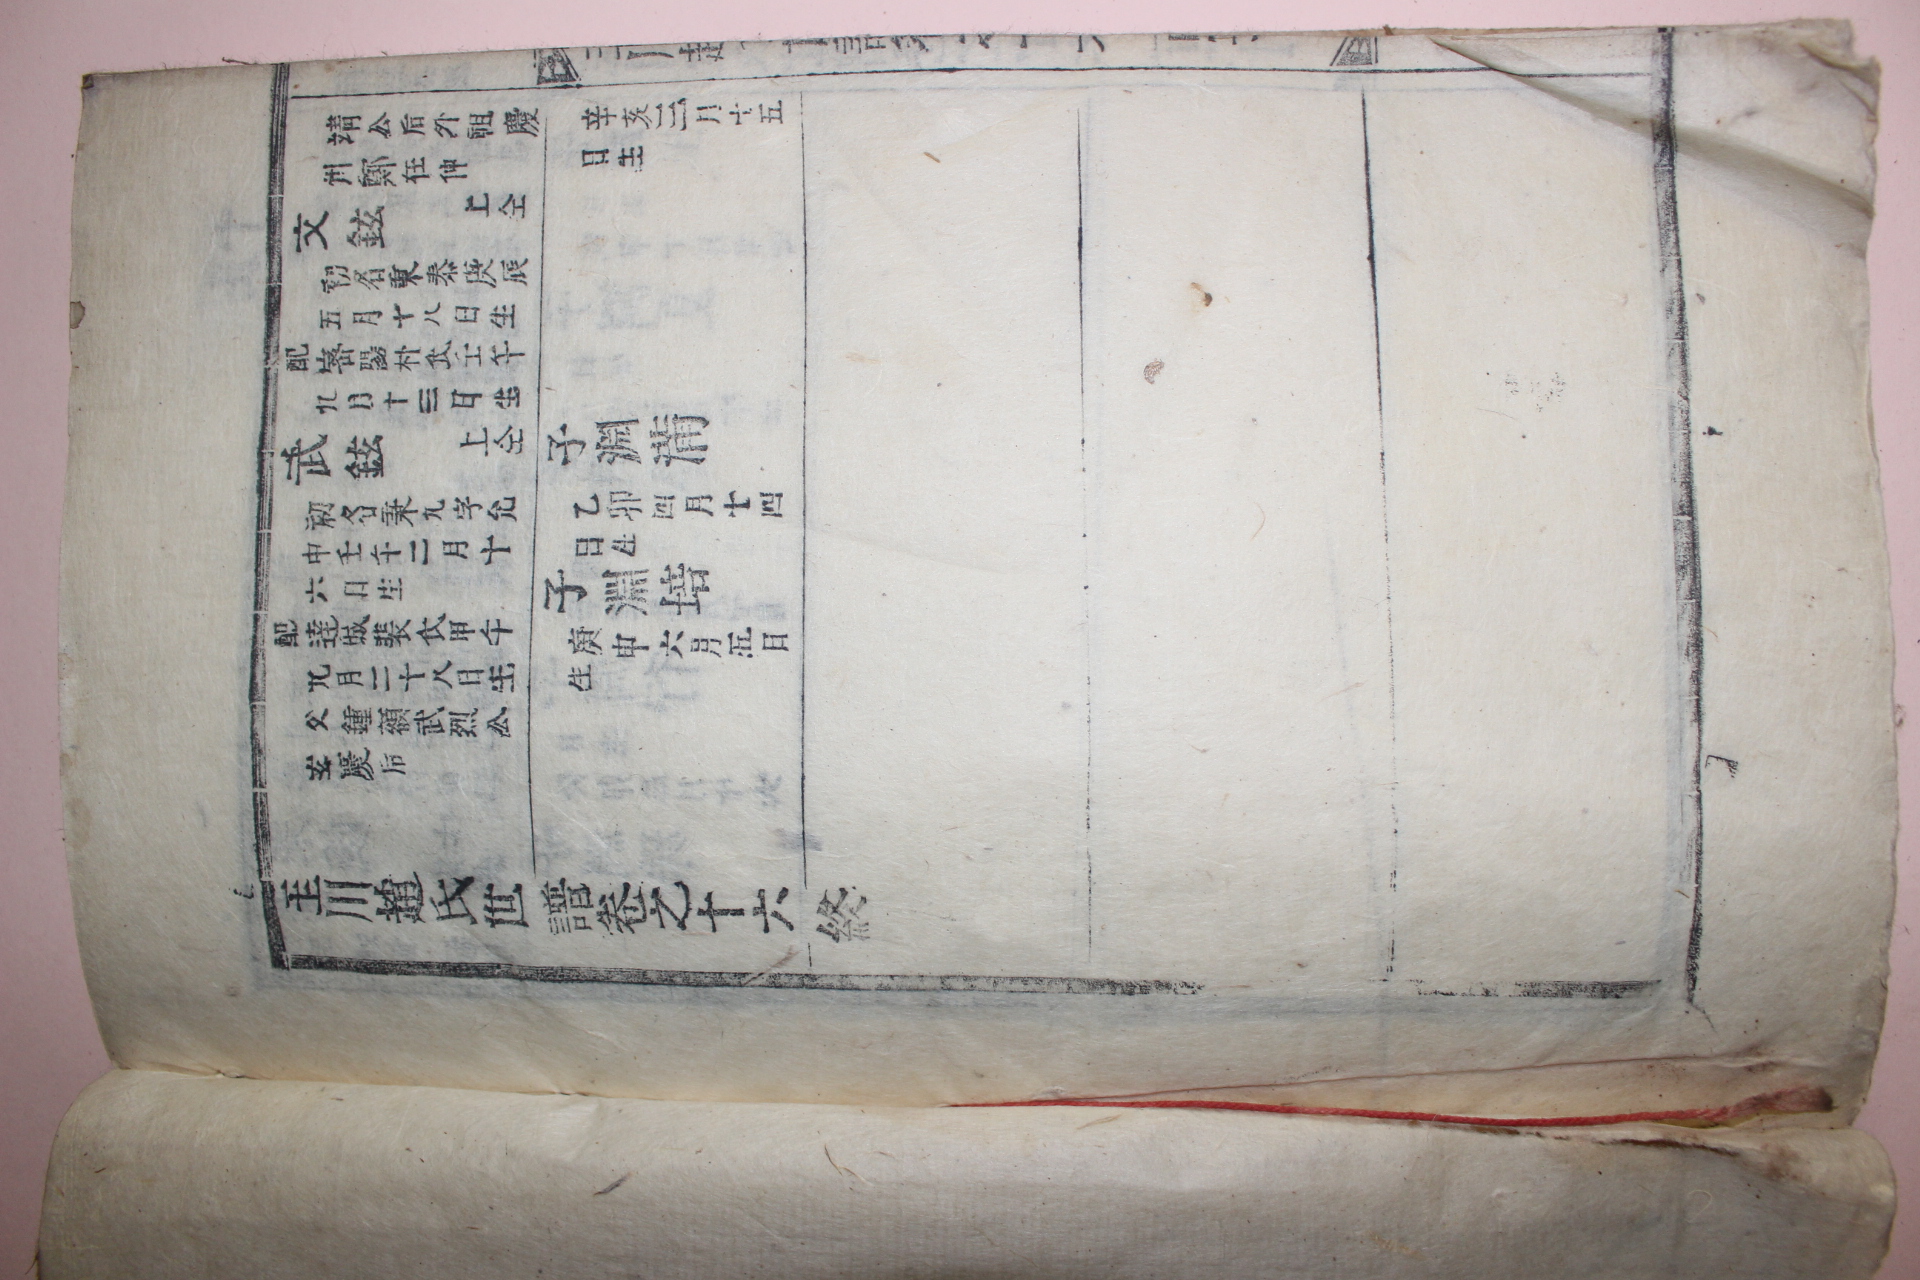 靖公后外祖慶
州鄭在伸
文鉉 上仝
初名秉泰庚辰
五月十八日生
配密陽朴氏壬午
九月十三日生
武鉉 上仝
初名秉九字允
中壬午二月十
六日生
配達城裴氏甲午
九月二十八日生
父鍾額武烈公
玄慶后
辛亥三月十五
日生
子淵
乙卯四月十四
日生
子淵培
庚申六月五日
生
玉川趙氏世譜卷之十六終